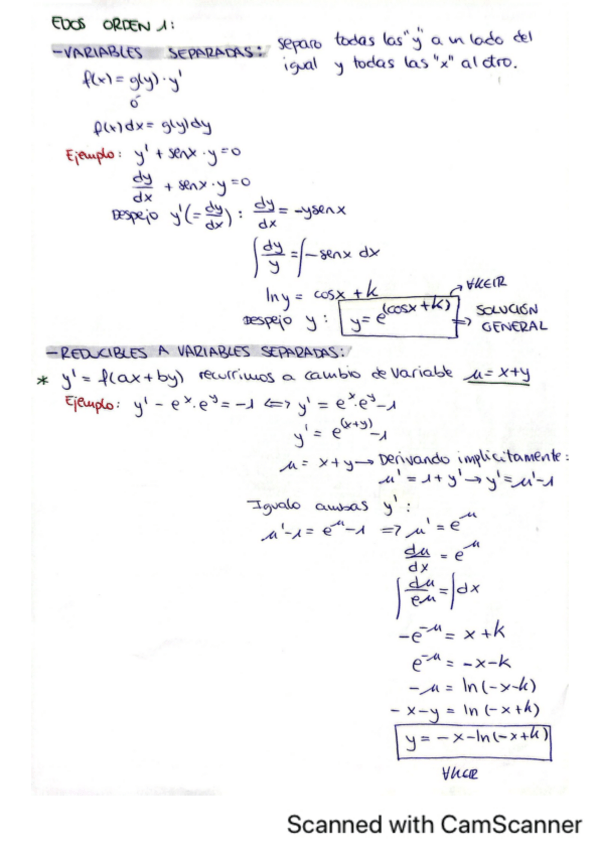 EDOS ORDEN 1:
-VARIABLES SEPARADAS: separo todas las "y" a un lado del
igual y todas las "x" al otro.
f(x) = g(y) · y'
ó
f(x)dx = g(y)dy
Ejemplo: y' + senx · y = 0
dy/dx + senx · y = 0
Despejo y'(= dy/dx) : dy/dx = -ysenx
∫ dy/y = ∫ -senx dx
ln y = cosx + k
Despejo y : y = e^(cosx + k) → ∀k∈ℝ => SOLUCIÓN GENERAL
-REDUCIBLES A VARIABLES SEPARADAS:
* y' = f(ax+by) recurrimos a cambio de variable u = x+y
Ejemplo: y' - e^x · e^y = -1 <=> y' = e^x · e^y - 1
y' = e^(x+y) - 1
u = x+y → Derivando implícitamente:
u' = 1 + y' → y' = u' - 1
Igualo ambas y' :
u' - 1 = e^u - 1 => u' = e^u
du/dx = e^u
∫ du/e^u = ∫ dx
-e^-u = x + k
e^-u = -x - k
-u = ln(-x-k)
-x-y = ln(-x+k)
y = -x - ln(-x+k)
∀k∈ℝ
Scanned with CamScanner